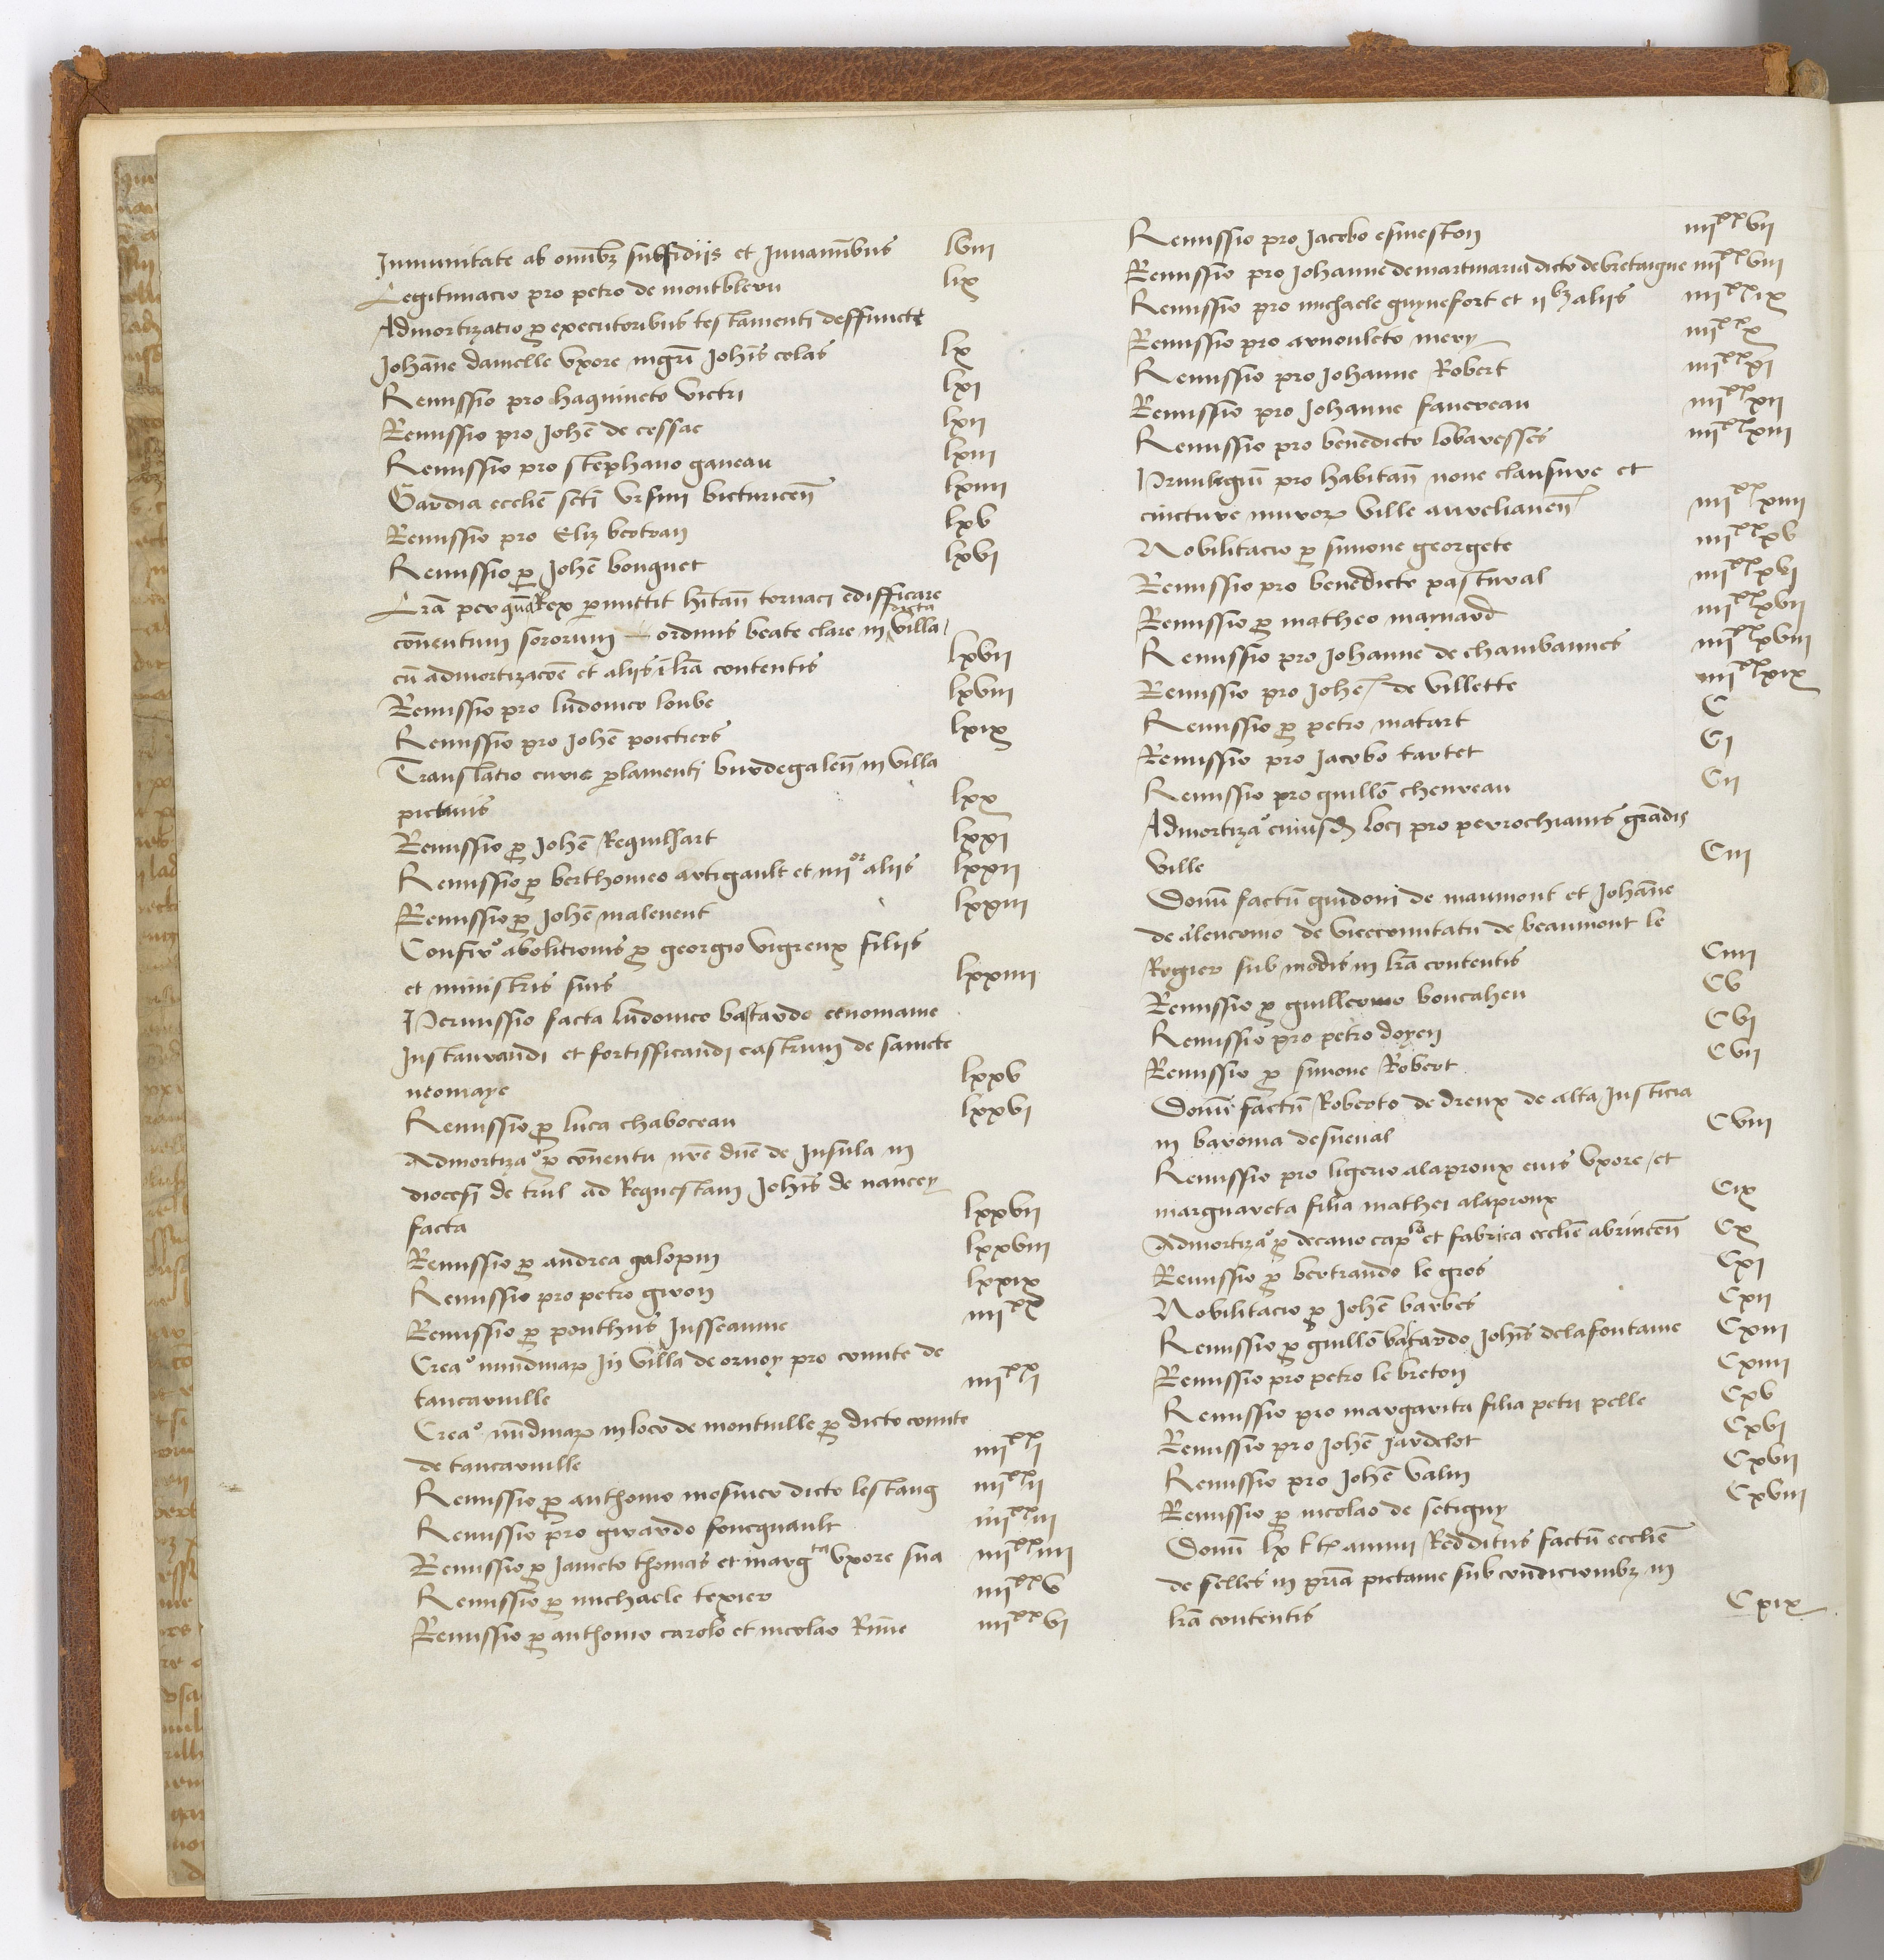 Inmunitate ab omnibz subsidiis et Juvaminibus lviii
Legitimacio pro petro de montblern lix
Admortizatio p executoribus testamenti deffuncte
Johāne damelle uxore mgri Johīs colas lx
Remissio pro haquineto victri lxi
Remissio pro Johē de cessac lxii
Remissio pro stephano ganeau lxiii
Gardia ecclīe scti ursini bicturiceñ lxiiii
Remissio pro Eliz bertran lxv
Remissio p Johē bouquet lxvi
Lrā per quā Rex permittit hitañ tornaci edifficare
conventum sororum ordinis beate clare in dicta villa
cū admortizacōe et aliis ī lrā contentis lxvii
Remissio pro ludovico loube lxviii
Remissio pro Johē poictiers lxix
Translatio curie plamenti burdegaleñ in villa
pictavis lxx
Remissio p Johē Requissart lxxi
Remissio p berthomeo artigault et iiiior aliis lxxii
Remissio p Johē malevent lxxiii
Confiro abolitionis p georgio vigreux filiis
et ministris suis lxxiiii
Permissio facta ludovico bastardo cenomanie
Instaurandi et fortifficandi castrum de sancte
neomaye lxxv
Remissio p luca chaboceau lxxvi
Admortizao p conventu nrē dnē de Insula in
diocesi de trul ad Requestam Johīs de nancey
facta lxxvii
Remissio p andrea galopin lxxviii
Remissio pro petro giron lxxix
Remissio p ponthus Jusseaume iiiixx
Creao nundinar In villa de ornoy pro comite de
tancarville iiiixxi
Creao nūdinar in loco de montville p dicto comite
de tancarville iiiixxi
Remissio p anthonio mesmer dicto lestang iiiixxii
Remissio pro girardo foucquault iiiixxiii
Remissio p Jameto thomas et margta uxore sua iiiixxiiii
Remissio p michaele texier iiiixxv
Remissio p anthonio carolo et nicolao Rime iiiixxvi
Remissio pro Jacobo esmeston iiiixxvii
Remissio pro Johanne de martmaria dicto de bretaigne iiiixxviii
Remissio pro michaele guynefort et iibz aliis iiiixxix
Remissio pro arnouleto mery iiiixxx
Remissio pro Johanne Robert iiiixxxi
Remissio pro Johanne favereau iiiixxxii
Remissio pro benedicto lobaresses iiiixxxiii
Privilegiū pro habitañ nove clausure et
cincture muror ville aurelianeñ iiiixxxiiii
Nobilitacio p simone georgete iiiixxxv
Remissio pro benedicto pastural iiiixxxvi
Remissio p matheo maynard iiiixxxvii
Remissio pro Johanne de chambannes iiiixxxviii
Remissio pro Johē de villette iiiixxxix
Remissio p petro matart C
Remissio pro Jacobo tartet Ci
Remissio pro guillō chevreau Cii
Admortizao cuiusd loci pro perrochianis grādis
ville Ciii
Donū factū guidoni de maumont et Johāne
de alenconio de vicecomitatu de beaumont le
Rogier sub modis in lrā contentis Ciiii
Remissio p guillermo boucaheu Cv
Remissio pro petro doyen Cvi
Remissio p simone Robert Cvii
Donū factū Roberto de dreux de alta Justicia
in baronia desneval Cviii
Remissio pro ligerio alaproux eius uxore et
marguareta filia mathei alaproux Cix
Admortizao p decano caplo et fabrica ecclīe abrinceñ Cx
Remissio p bertrando le gros Cxi
Nobilitacio p Johē barbes Cxii
Remissio p guillō bastardo Johīs delafontaine Cxiii
Remissio pro petro le breton Cxiiii
Remissio pro margarita filia petri pelle Cxv
Remissio pro Johē Jardelot Cxvi
Remissio pro Johē valin Cxvii
Remissio p nicolao de setigny Cxviii
Donū lx l tz annui Redditus factū ecclīe
de selles in priā pictavie sub condicionibz in
lrā contentis Cxix